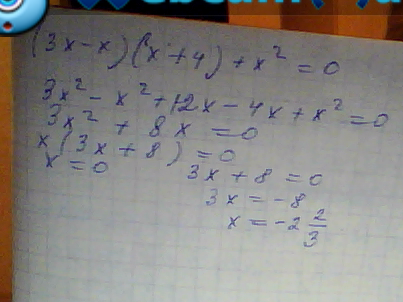 (3x-x)(x+4)+x²=0
3x²-x²+12x-4x+x²=0
3x²+8x=0
x(3x+8)=0
x=0
3x+8=0
3x=-8
x=-2 2/3